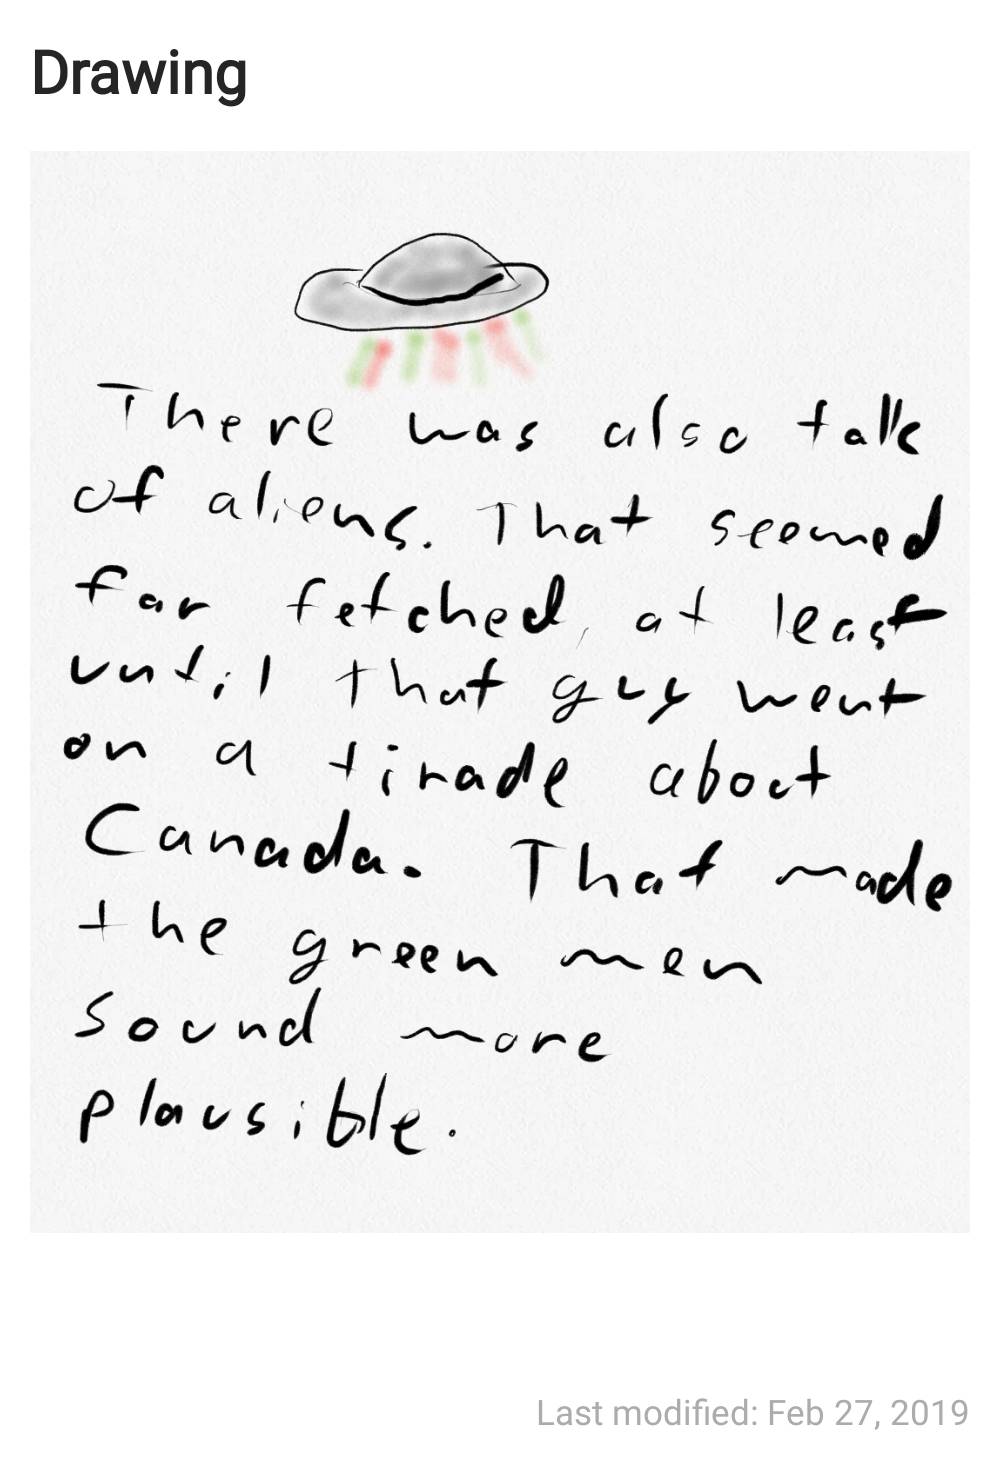 Drawing
There was also talk
of aliens. That seemed
far fetched, at least
until that guy went
on a tirade about
Canada. That made
the green men
sound more
plausible.
Last modified: Feb 27, 2019